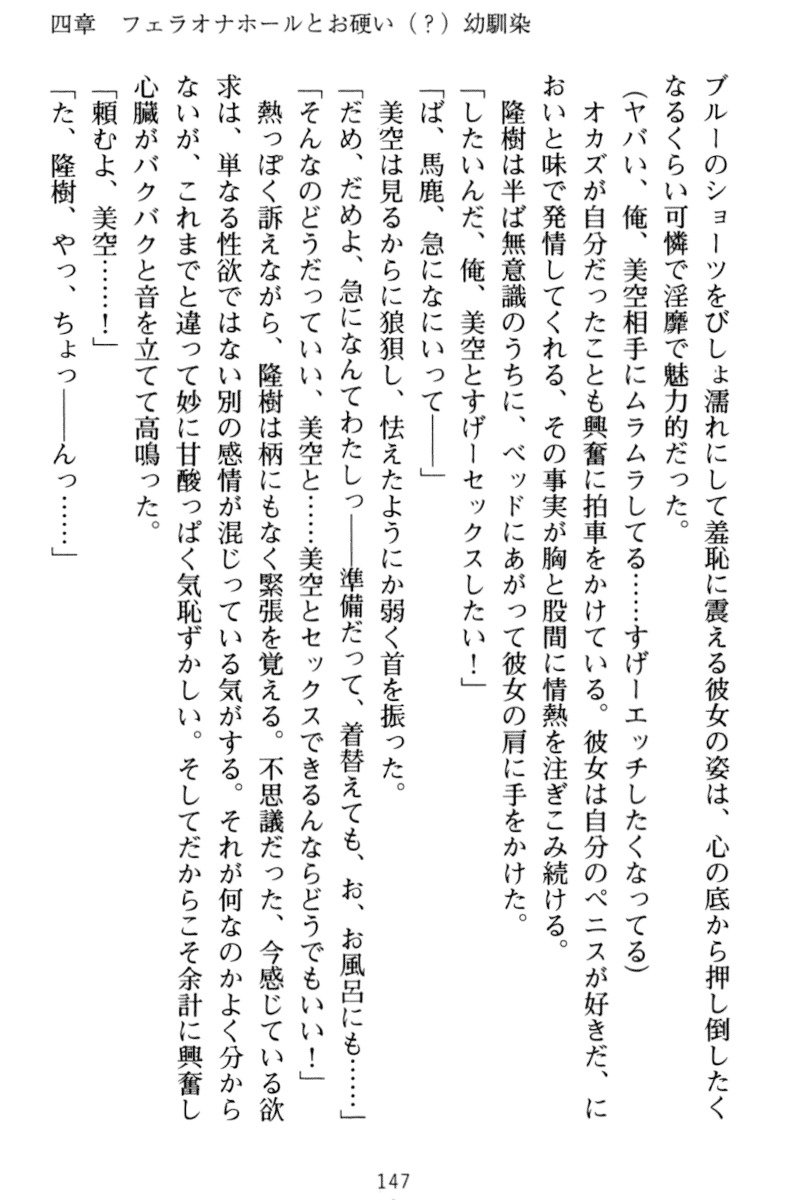 四章　フェラオナホールとお硬い（？）幼馴染
ブルーのショーツをびしょ濡れにして羞恥に震える彼女の姿は、心の底から押し倒したく
なるくらい可憐で淫靡で魅力的だった。
（ヤバい、俺、美空相手にムラムラしてる……すげーエッチしたくなってる）
オカズが自分だったことも興奮に拍車をかけている。彼女は自分のペニスが好きだ、に
おいと味で発情してくれる、その事実が胸と股間に情熱を注ぎこみ続ける。
隆樹は半ば無意識のうちに、ベッドにあがって彼女の肩に手をかけた。
「したいんだ、俺、美空とすげーセックスしたい！」
「ば、馬鹿、急になにいって――」
美空は見るからに狼狽し、怯えたようにか弱く首を振った。
「だめ、だめよ、急になんてわたしっ――準備だって、着替えても、お、お風呂にも……」
「そんなのどうだっていい、美空と……美空とセックスできるんならどうでもいい！」
熱っぽく訴えながら、隆樹は柄にもなく緊張を覚える。不思議だった、今感じている欲
求は、単なる性欲ではない別の感情が混じっている気がする。それが何なのかよく分から
ないが、これまでと違って妙に甘酸っぱく気恥ずかしい。そしてだからこそ余計に興奮し
心臓がバクバクと音を立てて高鳴った。
「頼むよ、美空……！」
「た、隆樹、やっ、ちょっ――んっ……」
147